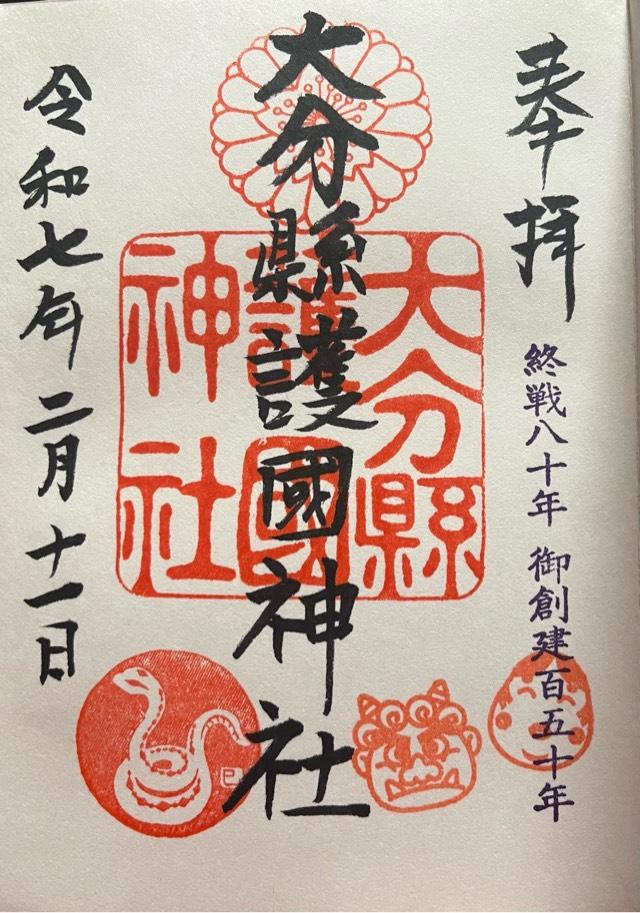 奉拝
終戦八十年 御創建百五十年
大分縣護國神社
大分縣
護國
神社
令和七年二月十一日
巳